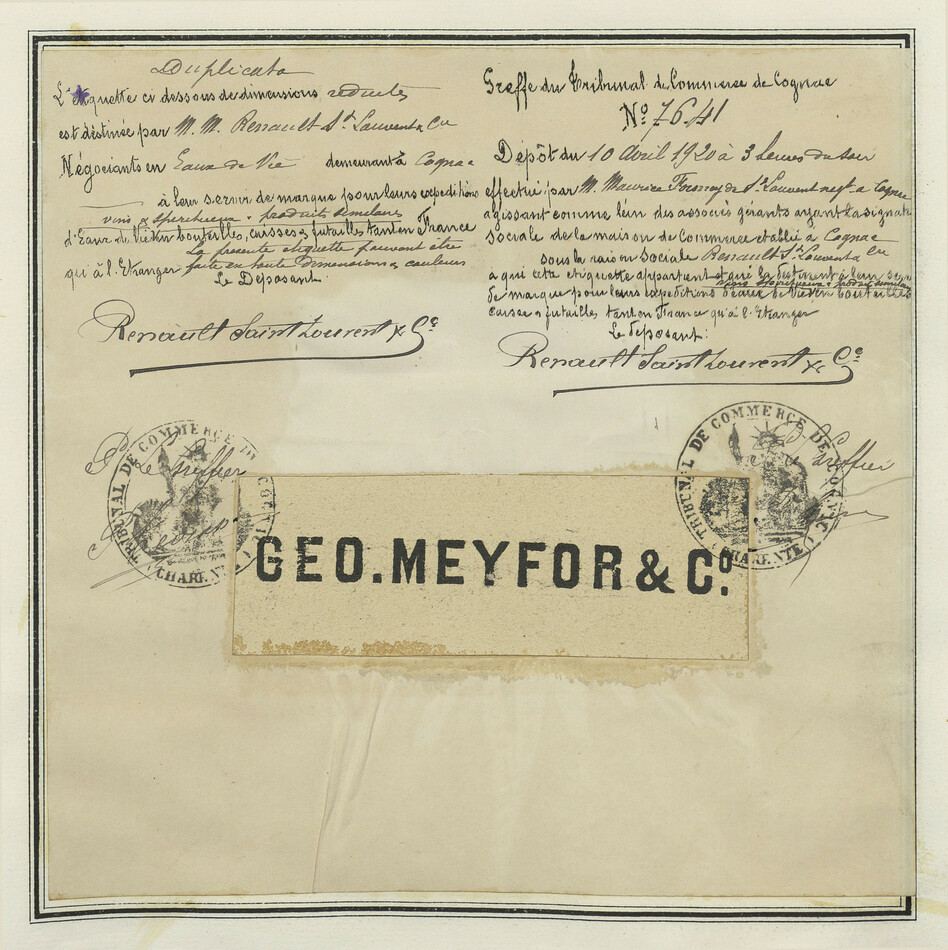 Duplicata
L'étiquette ci dessous de dimensions reduites
est destinée par M. M. Renault St Laurent & Cie
Négociants en Eaux de Vie demeurant à Cognac
à leur servir de marque pour leurs expéditions
vins & spiritueux & produits similaires
d'Eaux de Vie en bouteilles, caisses & futailles tant en France
La présente étiquette pouvant être
qu'à l'Etranger faite en toute dimensions & couleurs
Le Déposant
Renault Saint Laurent & Cie
Greffe du Tribunal de Commerce de Cognac
No 76.41
Dépôt du 10 Avril 1920 à 3 heures du soir
effectué par M. Maurice de St Laurent negt à Cognac
agissant comme l'un des associés gérants ayant la signature
sociale de la maison de Commerce établie à Cognac
sous la raison Sociale Renault St Laurent & Cie
à qui cette étiquette appartient et qui la destinent à leur servir
vins spiritueux & produits similaires
de marque pour leurs expéditions d'eaux de Vie en bouteilles
caisses & futailles tant en France qu'à l'Etranger
Le déposant:
Renault Saint Laurent & Cie
P. Le Greffier
TRIBUNAL DE COMMERCE DE COGNAC
CHARENTE
P. Le Greffier
TRIBUNAL DE COMMERCE DE COGNAC
CHARENTE
GEO. MEYFOR & Co.